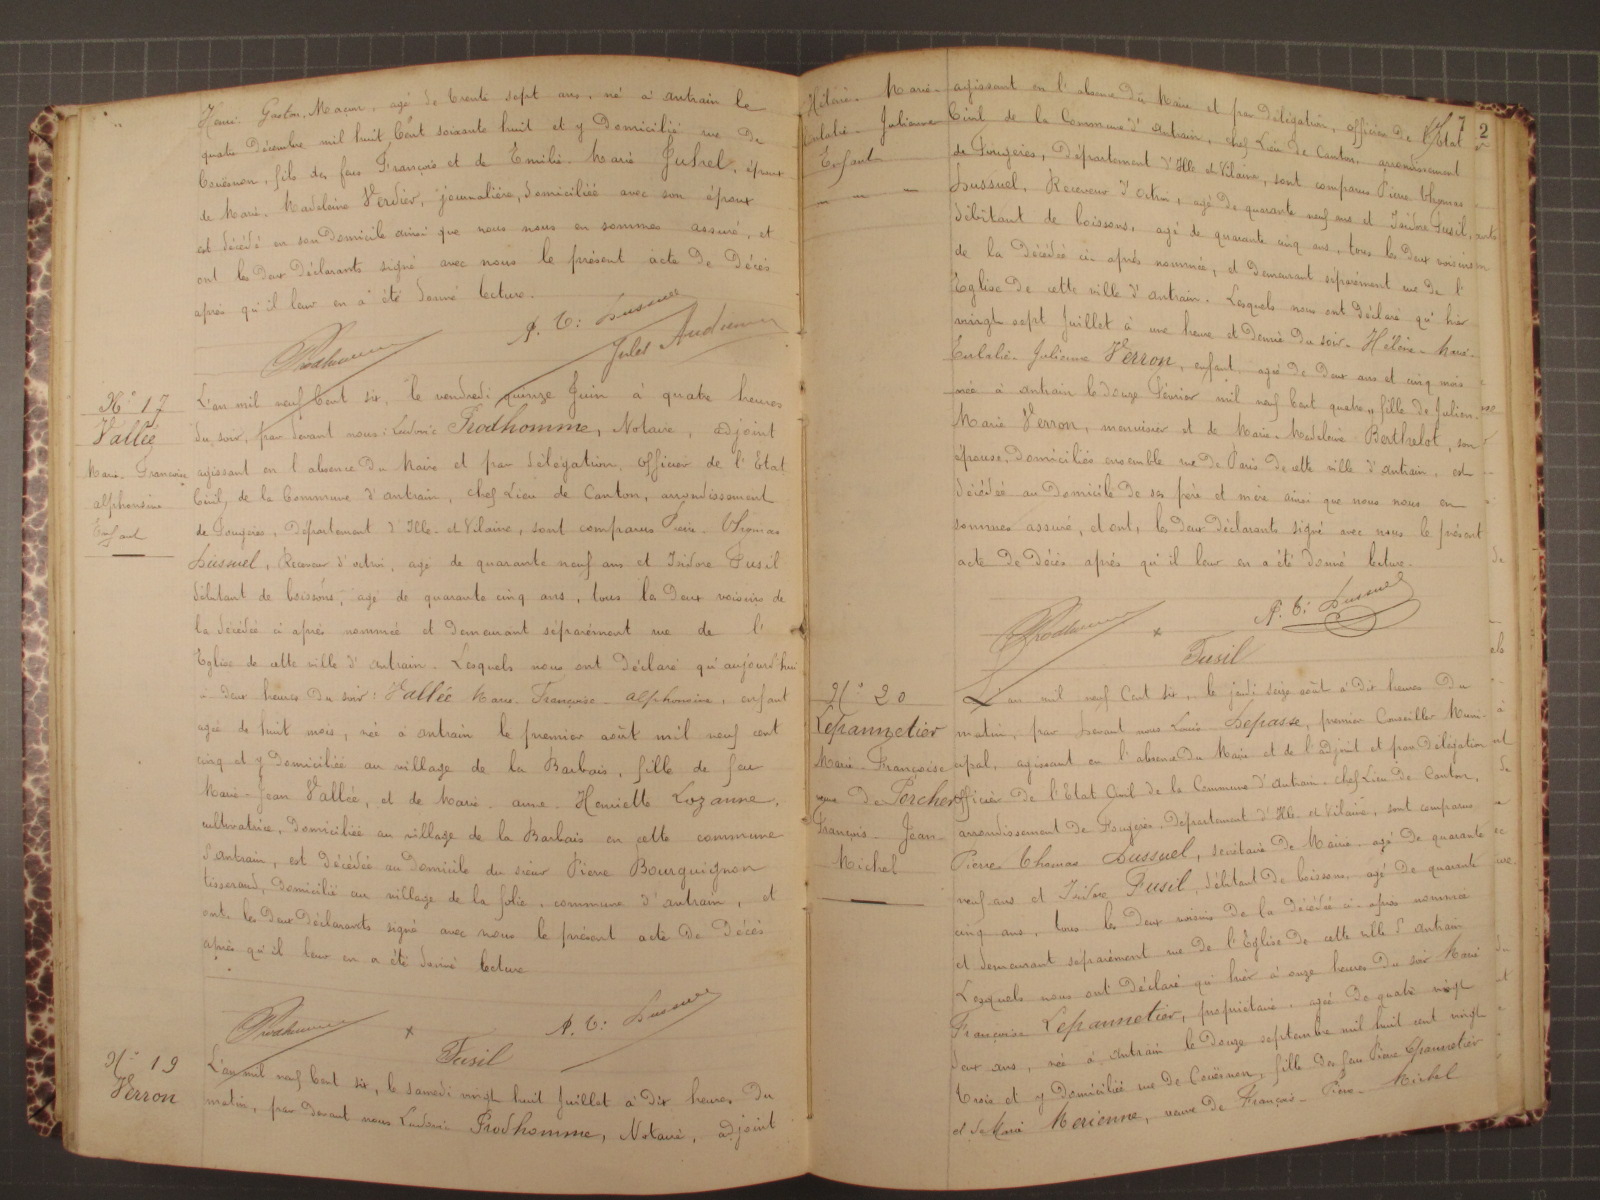 Henri Gaston, Maçon, agé de trente sept ans, né à antrain le
quatre Décembre mil huit Cent soixante huit et y Domicilié rue de
Couësnon, fils des feus François et de Emilie Marie Juhel, époux
de Marie Madeleine Verdier, journalière, domiciliée avec son époux
est décédé en son Domicile ainsi que nous nous en sommes assuré, et
ont les Deux Déclarants signé avec nous le présent acte de Décès
après qu'il leur en a été donné lecture.
Prodhomme P. T: Dussuel
Jules
N° 17
Vallée
Marie Françoise
alphonsine
Enfant
L'an mil neuf Cent six, le vendredi quinze Juin à quatre heures
du soir, par devant nous: Ludovic Prodhomme, Notaire, adjoint
agissant en l'absence du Maire et par délégation, officier de l'Etat
Civil, de la Commune d'antrain, chef Lieu de Canton, arrondissement
de Fougères, Département d'Ille et Vilaine, sont comparus Pierre Thomas
Dussuel, Receveur d'octroi, agé de quarante neuf ans et Isidore Fusil
débitant de boissons, agé de quarante cinq ans, tous les Deux voisins de
la décédée ci après nommée et demeurant séparément rue de l'
Eglise de cette ville d'antrain. Lesquels nous ont Déclaré qu'aujourd'hui
à deux heures du soir: Vallée Marie Françoise alphonsine, enfant
agée de huit mois, née à antrain le premier août mil neuf cent
cinq et y Domiciliée au village de la Barbais, fille de feu
Marie-Jean Vallée, et de Marie anne Henriette Lozanne,
cultivatrice, Domiciliée au village de la Barbais en cette commune
d'antrain, est Décédée au domicile du sieur Pierre Bourguignon
tisserand, Domicilié au village de la folie, commune d'antrain, et
ont les Deux Déclarants signé avec nous le présent acte de Décès
après qu'il leur en a été donné lecture
Prodhomme x P. T: Dussuel
Fusil
N° 19
Verron
L'an mil neuf Cent six, le samedi vingt huit Juillet à dix heures du
matin, par devant nous Ludovic Prodhomme, Notaire, adjoint
7 2
Hélène Marie
Eulalie Julienne
Enfant
agissant en l'absence du Maire et par délégation, officier de l'Etat
Civil de la Commune d'antrain, chef Lieu de Canton, arrondissement
de Fougères, Département d'Ille et Vilaine, sont comparus Pierre Thomas
Dussuel, Receveur d'octroi, agé de quarante neuf ans et Isidore Fusil,
débitant de boissons, agé de quarante cinq ans, tous les Deux voisins
de la décédée ci après nommée, et demeurant séparément rue de l'
Eglise de cette ville d'antrain. Lesquels nous ont déclaré qu'hier
vingt sept Juillet à une heure et demie du soir Hélène Marie
Eulalie Julienne Verron, enfant agée de deux ans et cinq mois
née à antrain le douze Février mil neuf Cent quatre, fille de Julien
Marie Verron, menuisier et de Marie Madeleine Berthelot, son
épouse, Domiciliés ensemble rue de Paris de cette ville d'antrain, est
décédée au Domicile de ses père et mère ainsi que nous nous en
sommes assuré, et ont, les deux déclarants signé avec nous le présent
acte de Décès après qu'il leur en a été donné lecture.
Prodhomme x P. T: Dussuel
Fusil
N° 20
Lepannetier
Marie Françoise
veuve de Porcher
François Jean
Michel
L'an mil neuf Cent six, le jeudi seize août à dix heures du
matin, par devant nous Louis Depasse, premier Conseiller Muni-
cipal, agissant en l'absence du Maire et de l'adjoint et par Délégation
officier de l'Etat Civil de la Commune d'antrain, chef Lieu de Canton,
arrondissement de Fougères, Département d'Ille et Vilaine, sont comparus
Pierre Thomas Dussuel, secrétaire de Mairie, agé de quarante
neuf ans et Isidore Fusil, débitant de boissons, agé de quarante
cinq ans, tous les deux voisins de la décédée ci après nommée
et demeurant séparément rue de l'Eglise de cette ville d'antrain
Lesquels nous ont déclaré qu'hier à onze heures du soir Marie
Françoise Lepannetier, propriétaire, agée de quatre vingt
deux ans, née à antrain le douze septembre mil huit cent vingt
trois et y domiciliée rue de Couësnon, fille des feu Pierre Lepannetier
et de Marie Merienne, veuve de François Pierre Michel